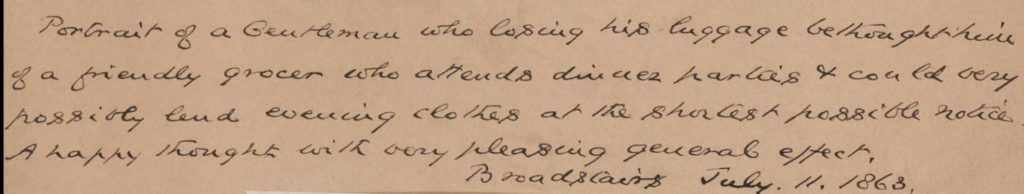 Portrait of a Gentleman who losing his luggage bethought him
of a friendly grocer who attends dinner parties & could very
possibly lend evening clothes at the shortest possible notice
A happy thought with very pleasing general effect.
Broadstairs July. 11. 1863.